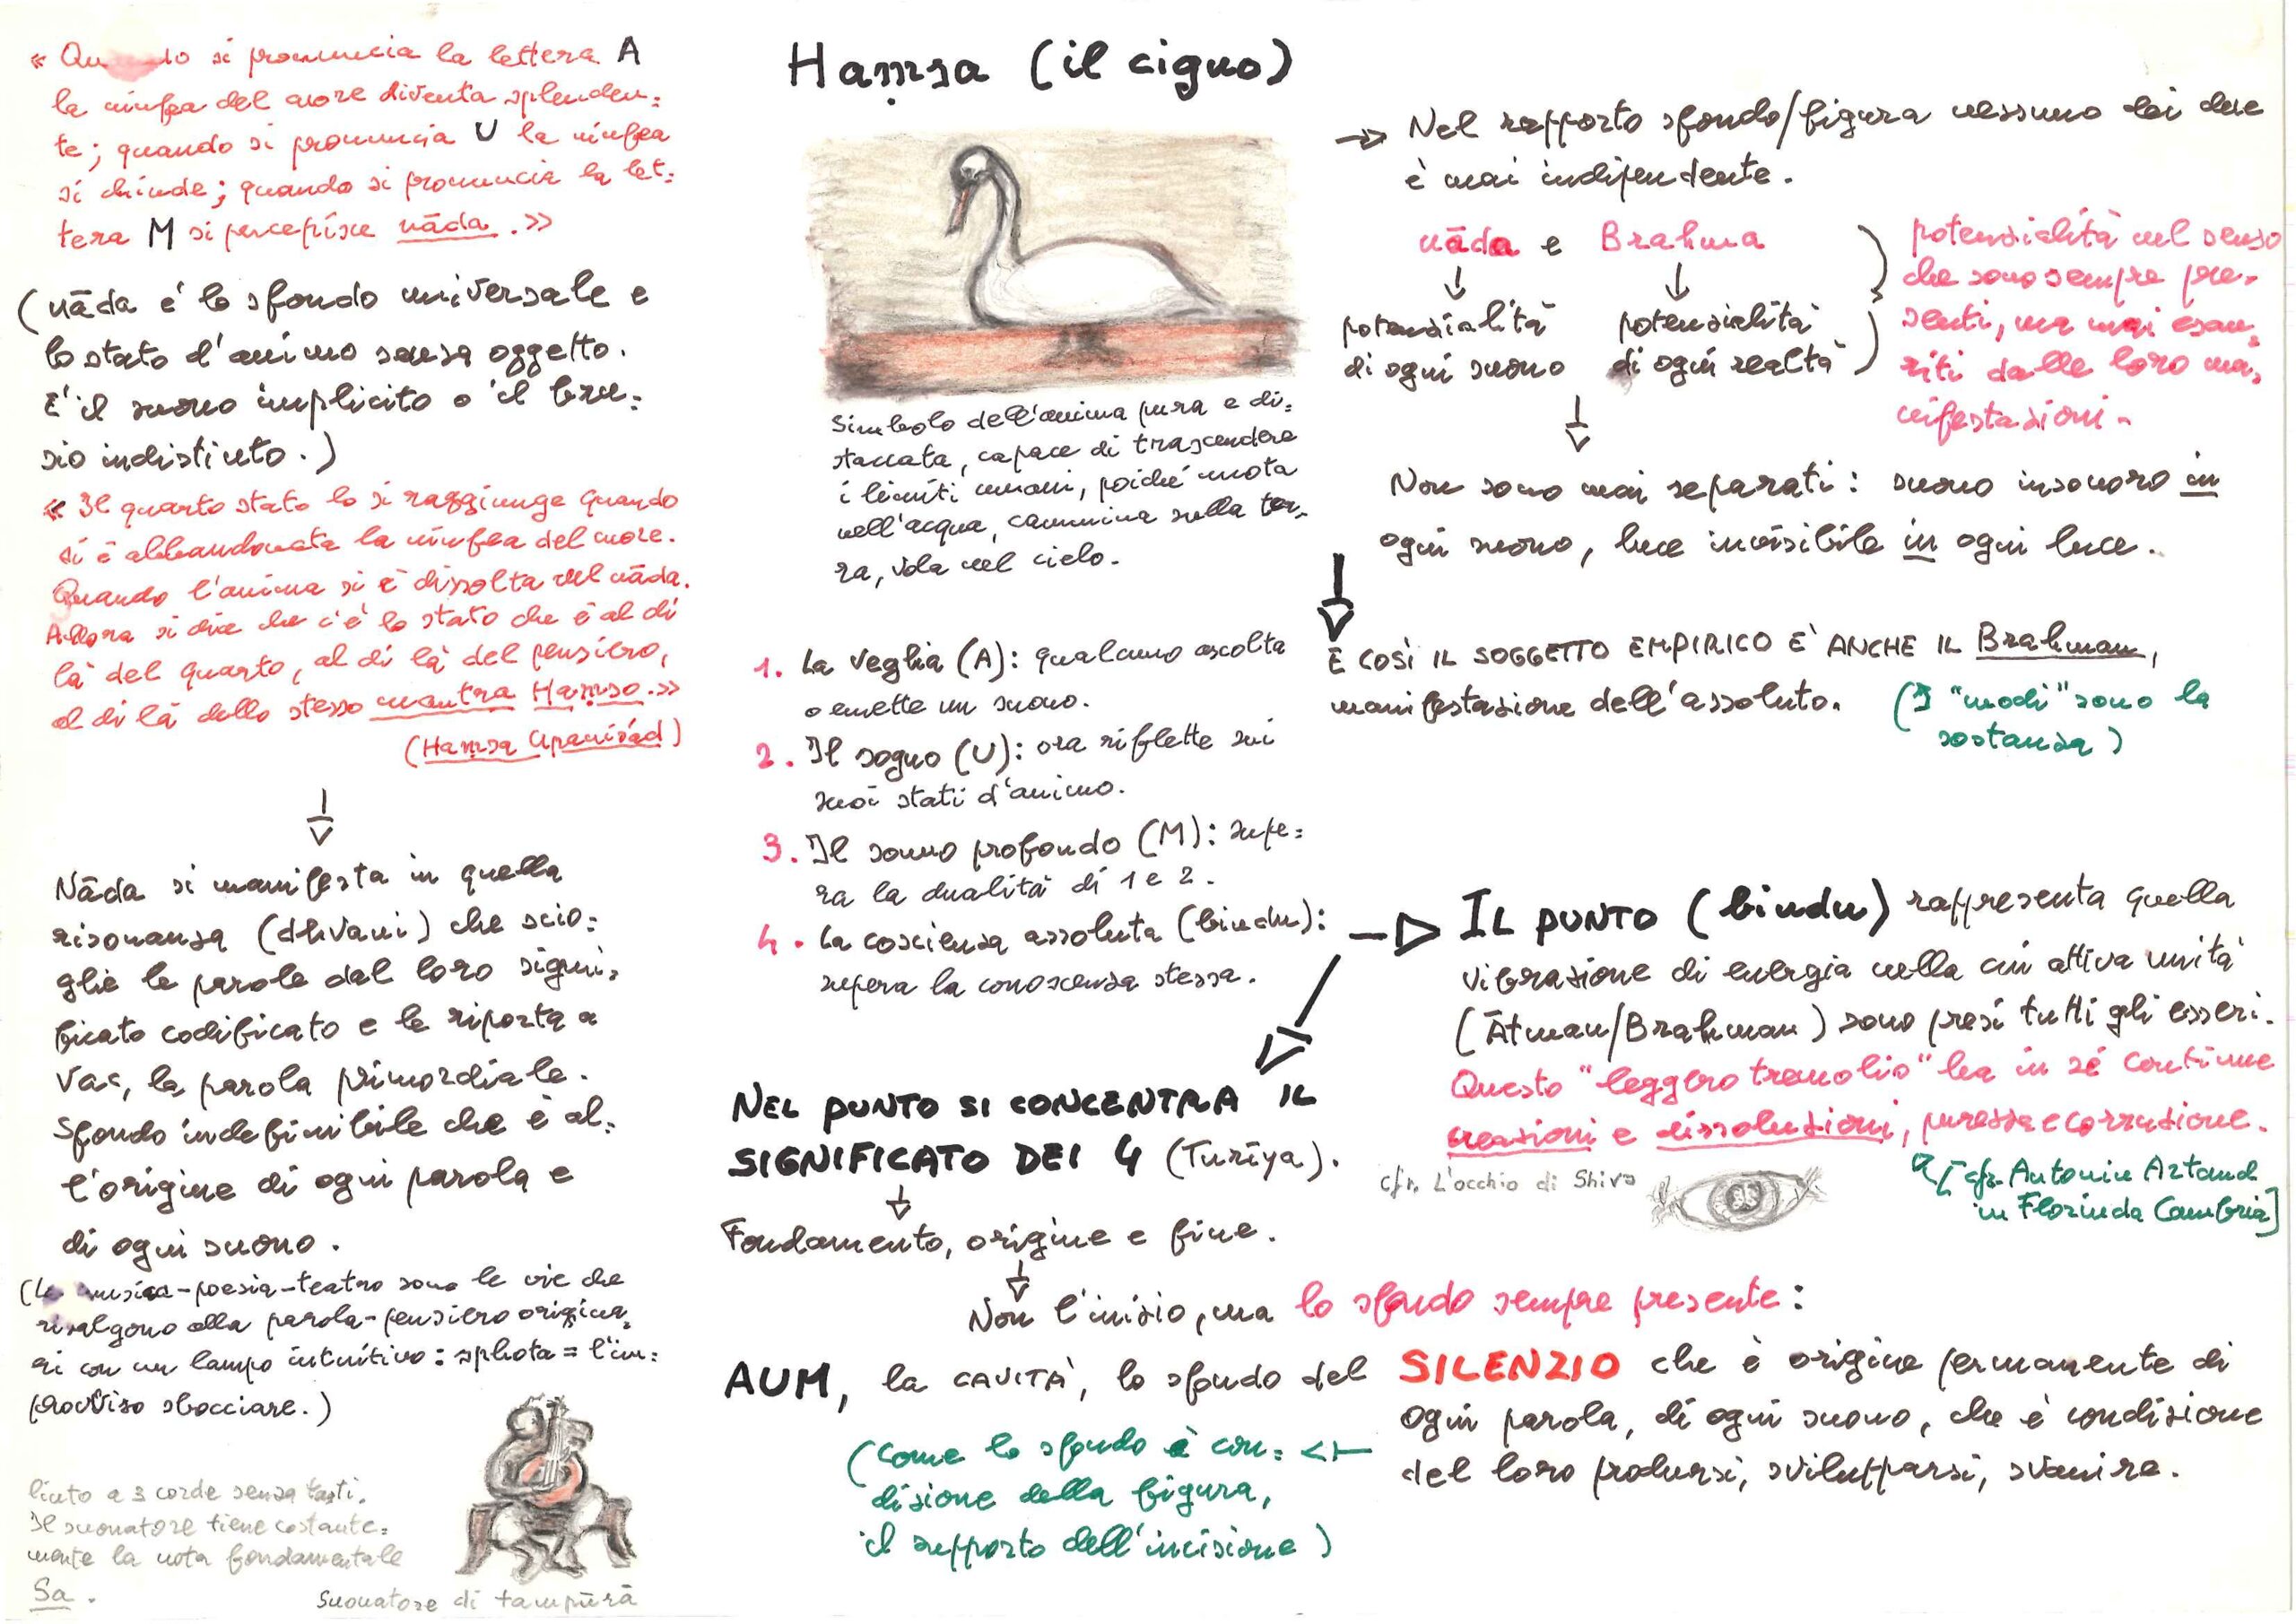 « Quando si pronuncia la lettera A
la ninfea del cuore diventa splenden=
te; quando si pronuncia U la ninfea
si chiude; quando si pronuncia la let=
tera M si percepisce nāda.»
(nāda è lo sfondo universale e
lo stato d'animo senza oggetto.
E' il suono implicito o il bru=
sio indistinto.)
« Il quarto stato lo si raggiunge quando
si è abbandonata la ninfea del cuore.
Quando l'anima si è dissolta nel nāda.
Allora si dice che c'è lo stato che è al di
là del quarto, al di là del pensiero,
al di là dello stesso mantra Haṃso.»
(Haṃsa Upaniṣad)
Nāda si manifesta in quella
risonanza (dhvani) che scio=
glie le parole dal loro signi=
ficato codificato e le riporta a
Vāc, la parola primordiale.
Sfondo indefinibile che è al=
l'origine di ogni parola e
di ogni suono.
(La musica-poesia-teatro sono le vie che
risalgono alla parola-pensiero origina=
ri con un lampo intuitivo: sphota = l'im=
provviso sbocciare.)
liuto a 3 corde senza tasti.
Il suonatore tiene costante=
mente la nota fondamentale
Sa.
suonatore di tampūrā
Haṃsa (il cigno)
Simbolo dell'anima pura e di=
staccata, capace di trascendere
i limiti umani, poiché nuota
nell'acqua, cammina sulla ter=
ra, vola nel cielo.
1. La veglia (A): qualcuno ascolta
o emette un suono.
2. Il sogno (U): ora riflette sui
suoi stati d'animo.
3. Il sonno profondo (M): supe=
ra la dualità di 1 e 2.
4. La coscienza assoluta (bindu):
supera la conoscenza stessa.
NEL PUNTO SI CONCENTRA IL
SIGNIFICATO DEI 4 (Turīya).
Fondamento, origine e fine.
Non l'inizio, ma lo sfondo sempre presente:
AUM, la CAVITÀ, lo sfondo del SILENZIO che è origine permanente di
ogni parola, di ogni suono, che è condizione
del loro prodursi, svilupparsi, svanire.
(Come lo sfondo è con=
dizione della figura,
il supporto dell'incisione)
Nel rapporto sfondo/figura nessuno dei due
è mai indipendente.
nāda e Brahma
potenzialità di ogni suono
potenzialità di ogni realtà
potenzialità nel senso
che sono sempre pre=
senti, ma mai esau=
riti dalle loro ma=
nifestazioni.
Non sono mai separati: suono insonoro in
ogni suono, luce invisibile in ogni luce.
E COSÌ IL SOGGETTO EMPIRICO E' ANCHE IL Brahman,
manifestazione dell'assoluto.
(I "modi" sono la
sostanza)
IL PUNTO (bindu) rappresenta quella
vibrazione di energia nella cui attiva unità
(Ātman/Brahman) sono presi tutti gli esseri.
Questo "leggero tremolio" ha in sé continue
creazioni e dissoluzioni, purezza e corruzione.
cfr. L'occhio di Shiva
[cfr. Antonin Artaud
in Florinda Cambria]